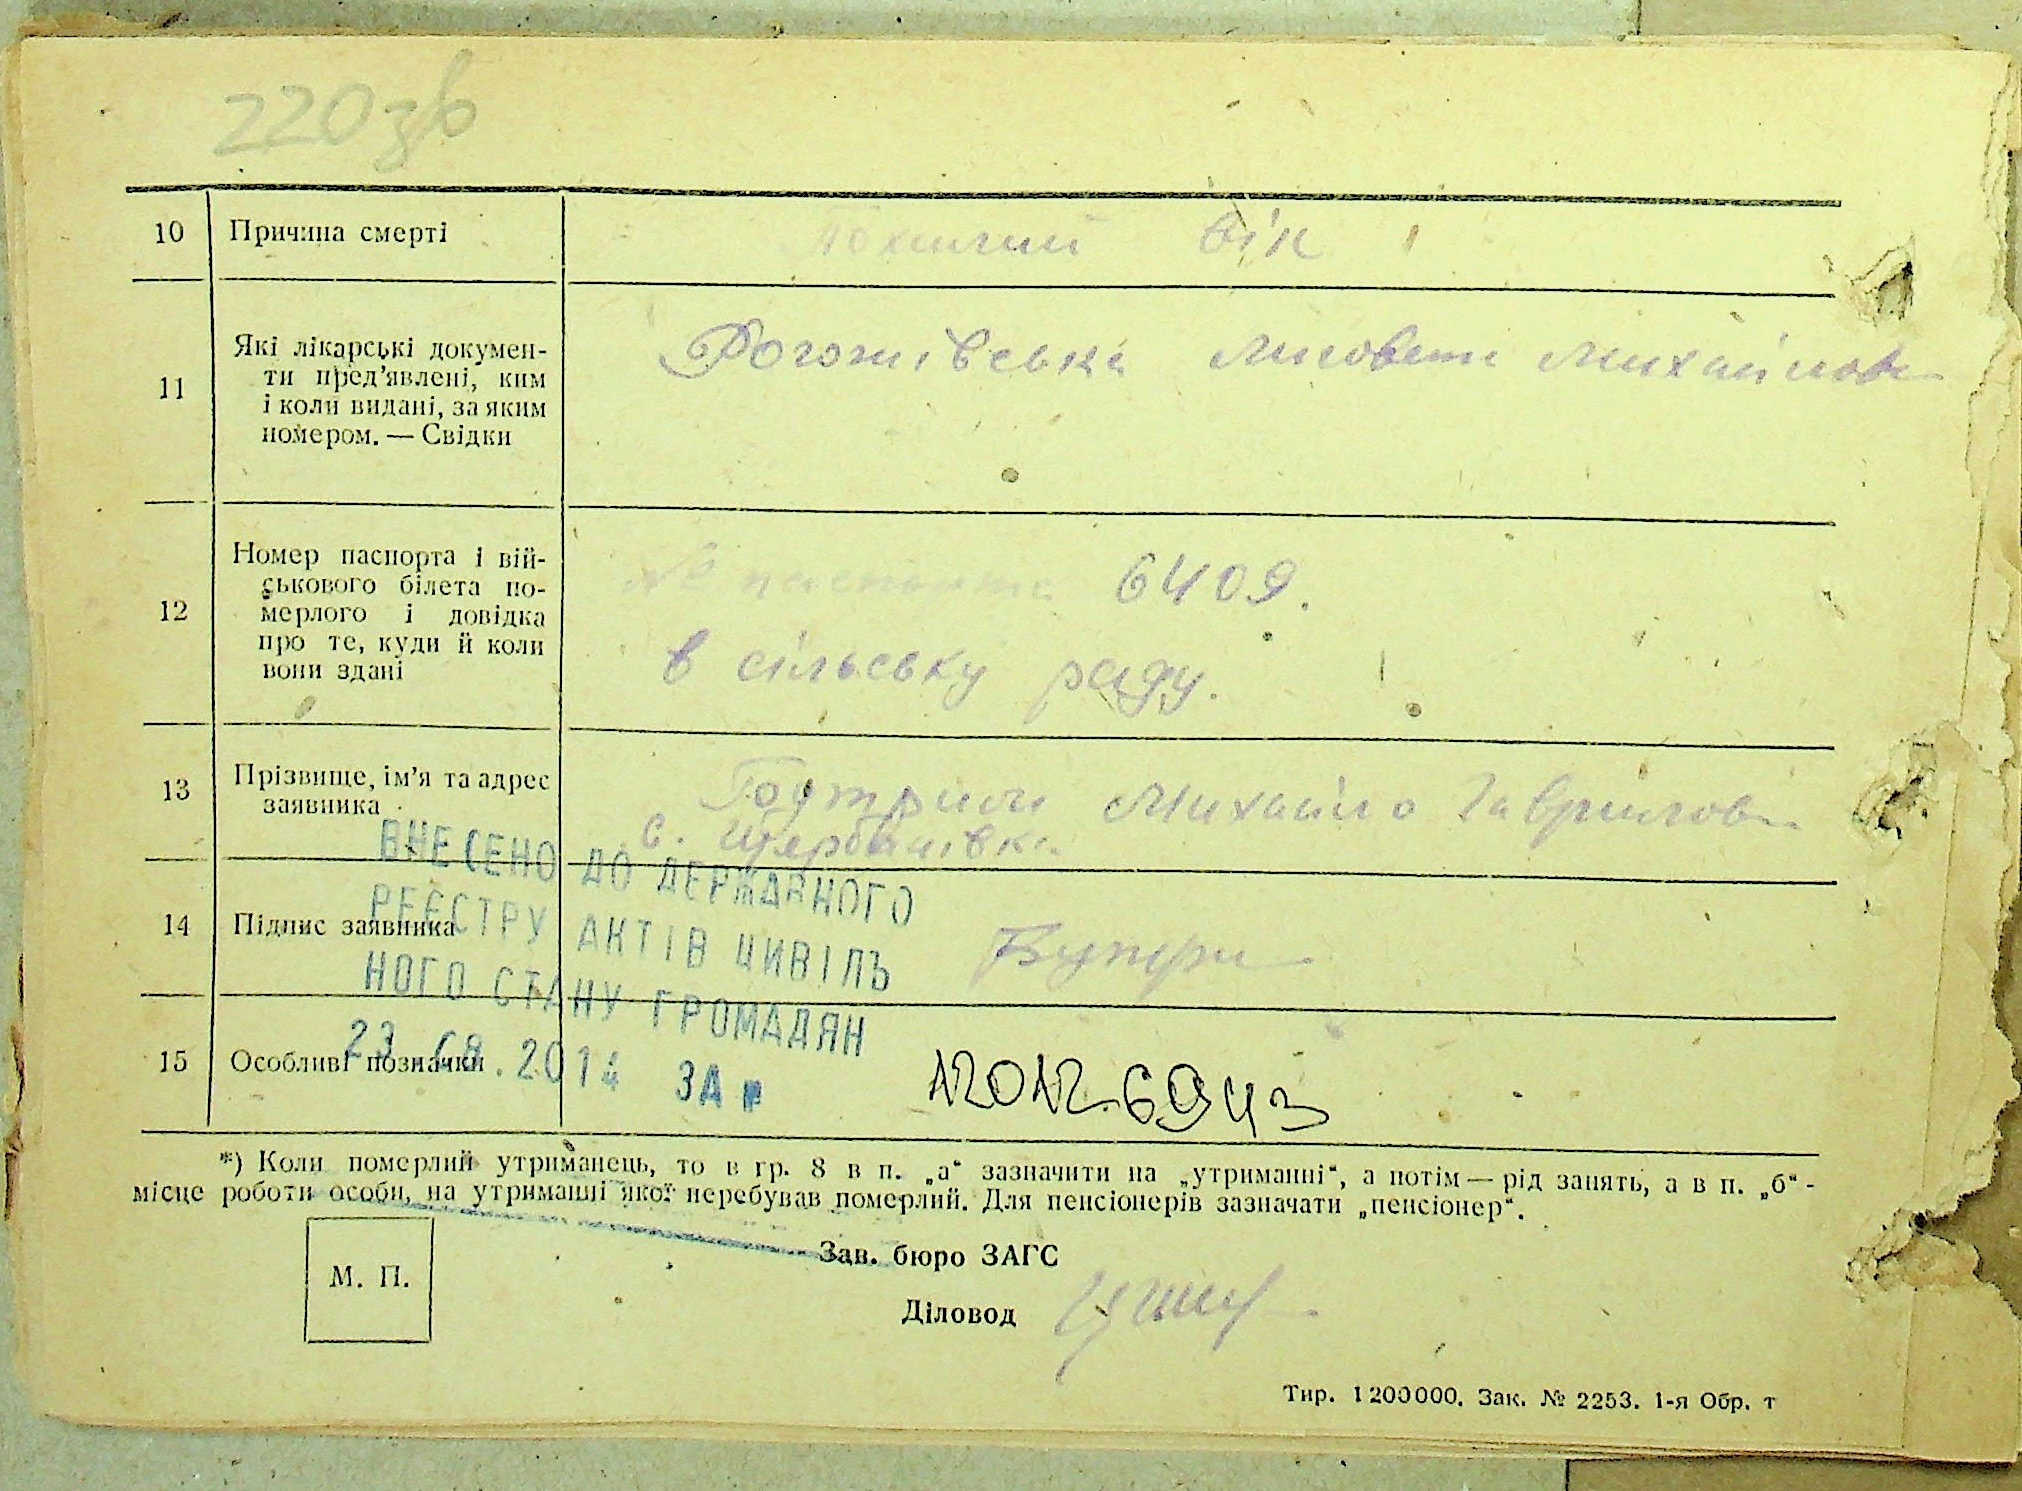 220зв
10 Причина смерті похилий вік
11 Які лікарські докумен-
ти пред’явлені, ким
і коли видані, за яким
номером. — Свідки
Михайлов
12 Номер паспорта і вій-
ськового білета по-
мерлого і довідка
про те, куди й коли
вони здані
№ паспорта 6409.
в сільську раду.
13 Прізвище, ім’я та адрес
заявника
Михайло Гаврилов
с. Щербанівка
14 Підпис заявника
15 Особливі позначки
ВНЕСЕНО ДО ДЕРЖАВНОГО
РЕЄСТРУ АКТІВ ЦИВІЛЬ
НОГО СТАНУ ГРОМАДЯН
23.08.2014 ЗА №
*) Коли померлий утриманець, то в гр. 8 в п. „а“ зазначити на „утриманні“, а потім — рід занять, а в п. „б“ -
місце роботи особи, на утриманні якої перебував померлий. Для пенсіонерів зазначати „пенсіонер“.
М. П.
Зав. бюро ЗАГС
Діловод
Тир. 1200000. Зак. № 2253. 1-я Обр. т